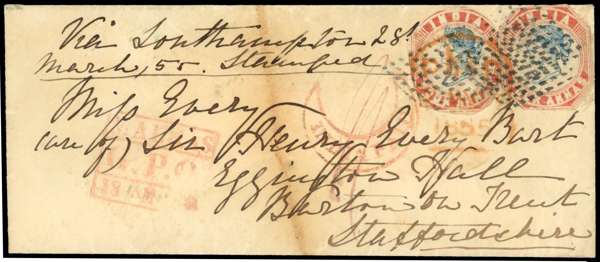 Via Southampton 28th
March, 55. Stamped
Miss Every
(care of) Sir Henry Every Bart
Eggington Hall
Burton on Trent
Staffordshire
INDIA
INDIA
1855
G.P.O.